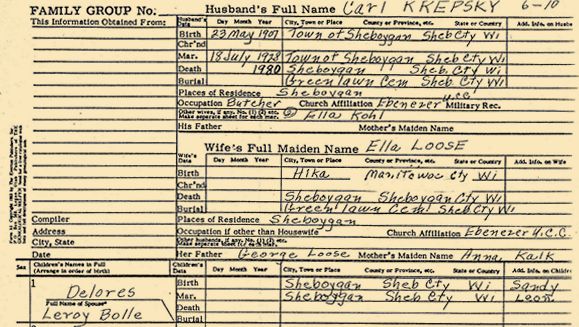 FAMILY GROUP No. Husband's Full Name Carl KREPSKY 6-10
This Information Obtained From:
Husband's Data Day Month Year City, Town or Place County or Province, etc. State or Country Add. Info. on Husband
Birth 23 May 1907 Town of Sheboygan Sheb Cty Wi
Chr'nd
Mar. 18 July 1928 Town of Sheboygan Sheb Cty Wi
Death 1980 Sheboygan Sheb. Cty Wi
Burial Greenlawn Cem Sheb Cty Wi
Places of Residence Sheboygan
Occupation Butcher Church Affiliation Ebenezer U.C.C. Military Rec.
Other wives, if any. No. (1) (2) etc. Make separate sheet for each mar. Ella Kohl
His Father Mother's Maiden Name
Wife's Full Maiden Name Ella LOOSE
Wife's Data Day Month Year City, Town or Place County or Province, etc. State or Country Add. Info. on Wife
Birth Hika Manitowoc Cty Wi
Chr'nd
Death Sheboygan Sheboygan Cty Wi
Burial Greenlawn Cem Sheb Cty Wi
Compiler Places of Residence Sheboygan
Address Occupation if other than Housewife Church Affiliation Ebenezer U.C.C.
City, State Other husbands, if any. No. (1) (2) etc. Make separate sheet for each mar.
Date Her Father George Loose Mother's Maiden Name Anna Kalk
Sex Children's Names in Full (Arrange in order of birth) Children's Data Day Month Year City, Town or Place County or Province, etc. State or Country Add. Info. on Children
1 Delores Birth Sheboygan Sheb Cty Wi Sandy
Mar. Sheboygan Sheb Cty Wi Leon
Full Name of Spouse* Death
Leroy Bolle Burial